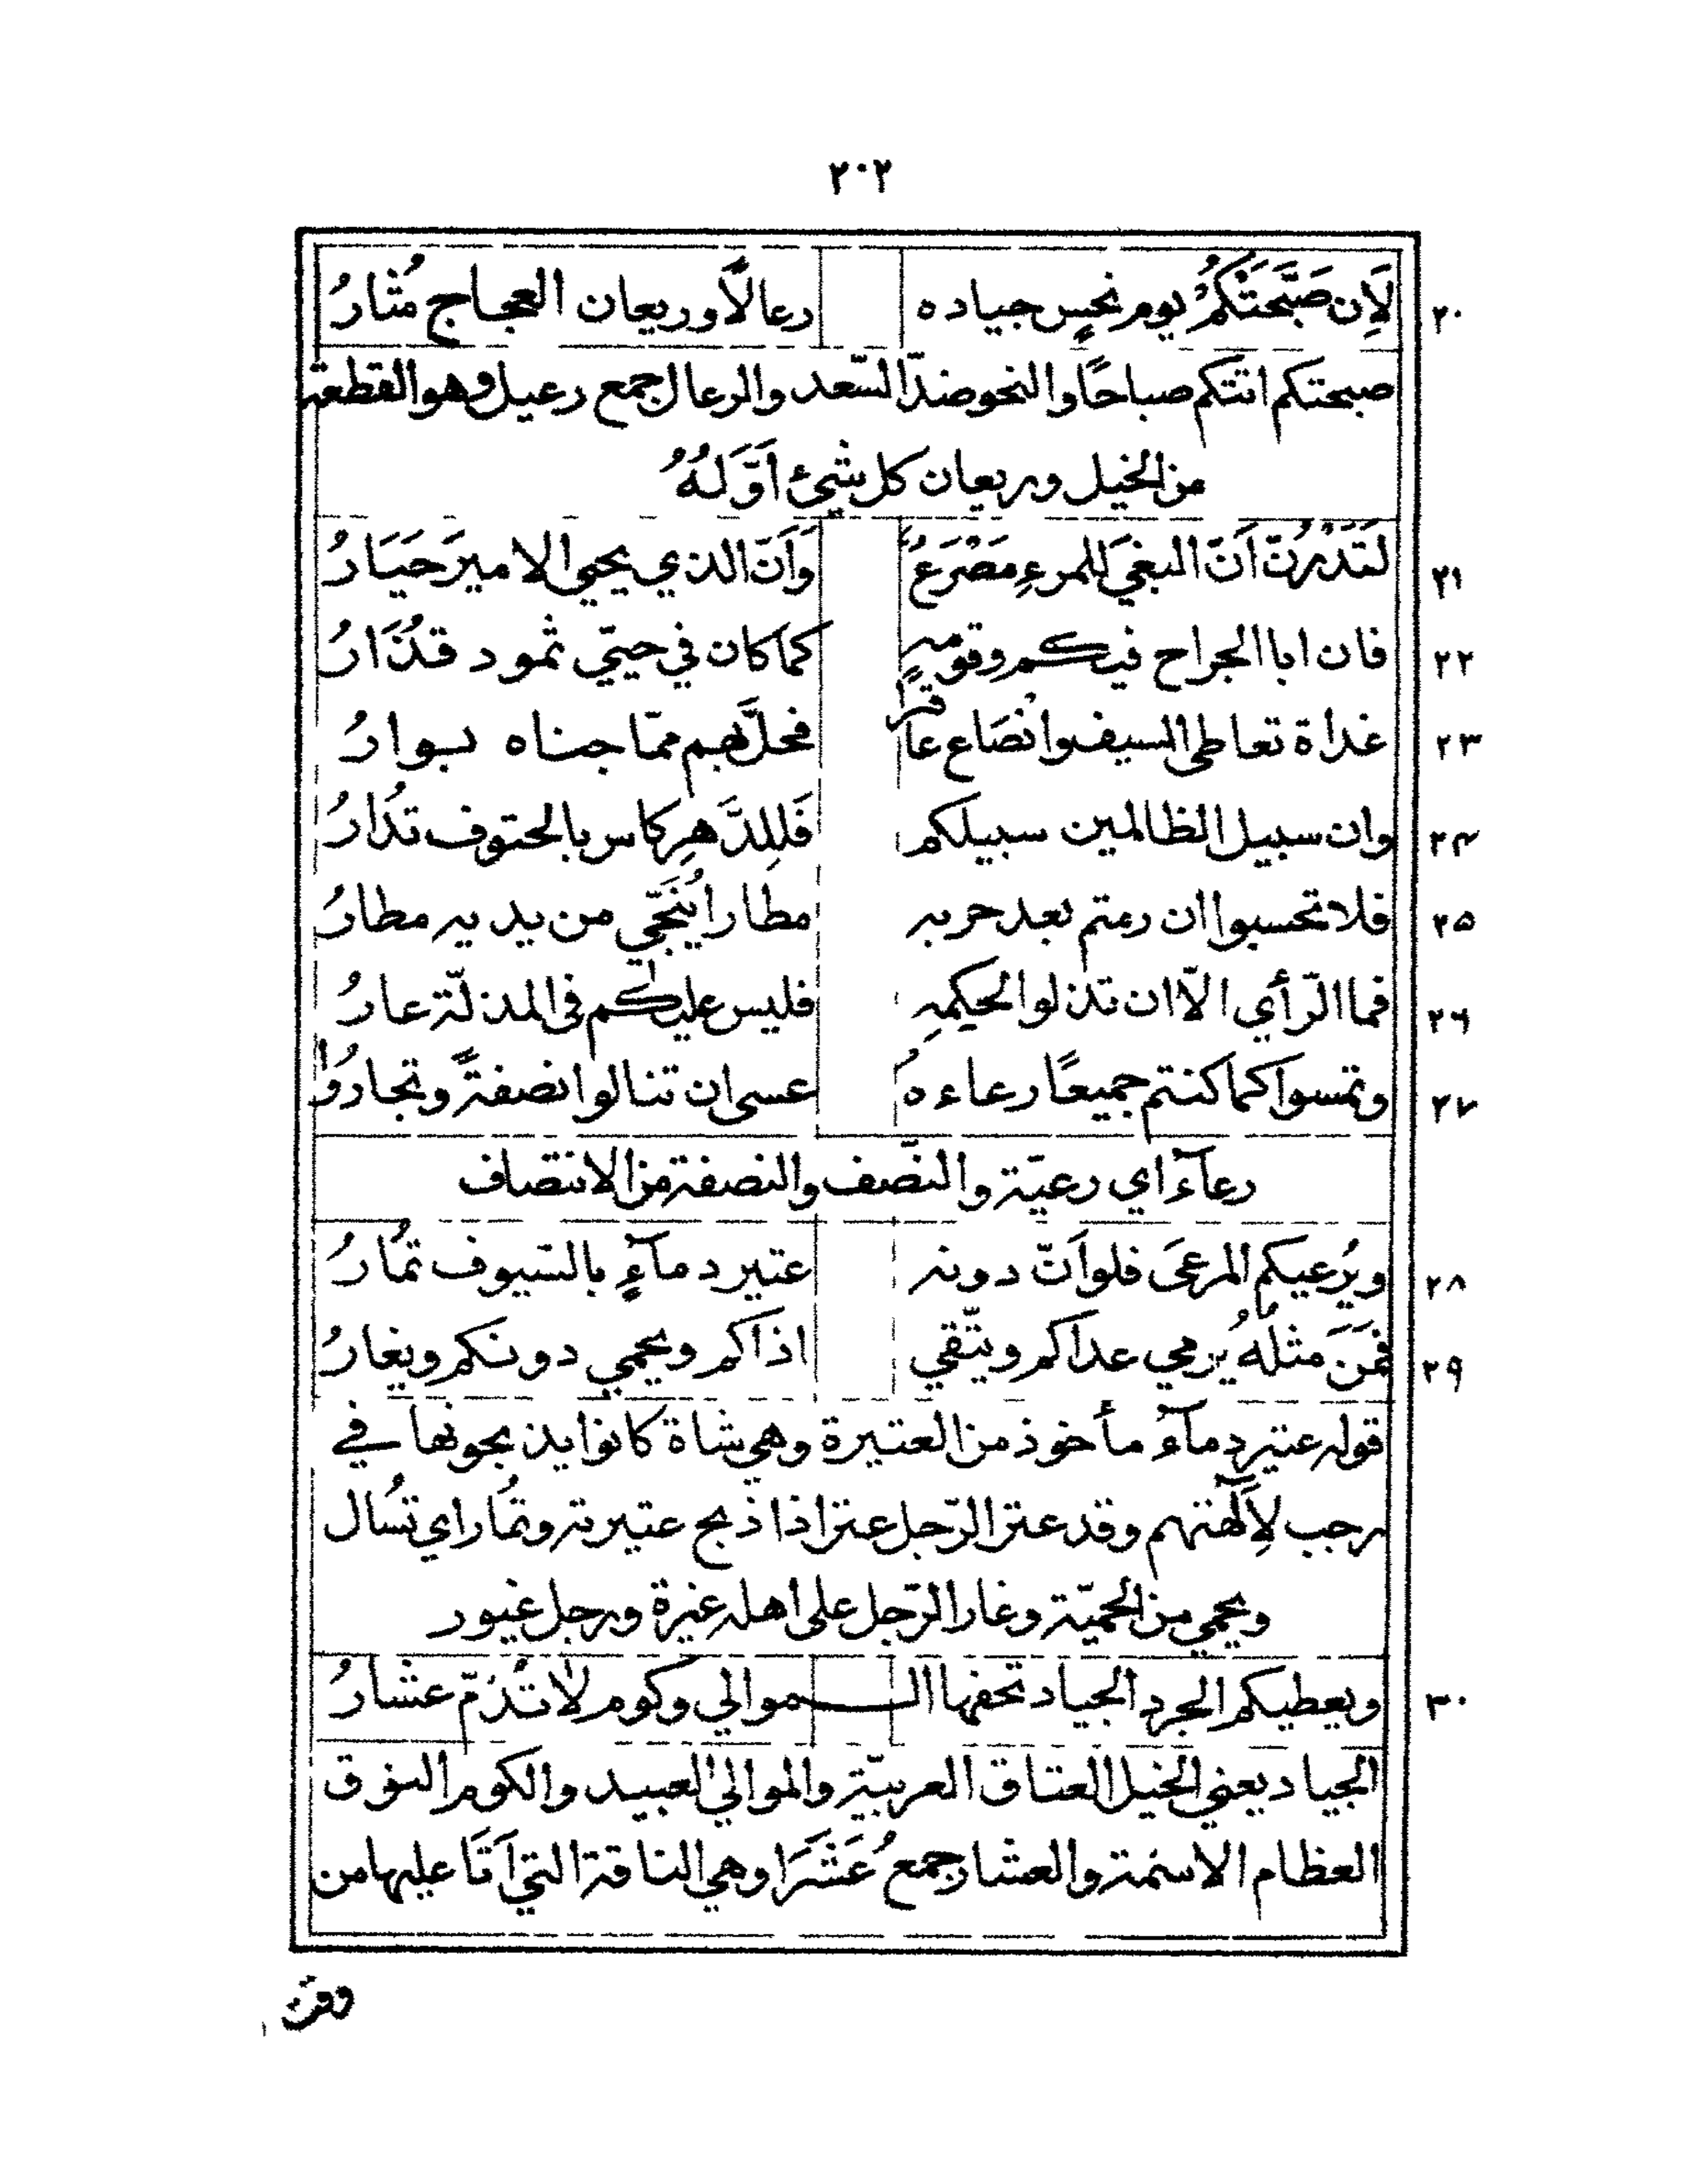 ٢٠٢
٢٠ لَأِن صَبَّحَتَكُمْ يوم نحسٍ جياده رعالًا وريعان العجاج مُثارُ
صبحتكم اتتكم صباحًا والنحو ضدّ السّعد والرعال جمع رعيل وهو القطعة
من الخيل وريعان كل شيئ أوَّلهُ
٢١ لقد رن أنّ البغيَ للمرءِ مَصْرَعُ وَأَنّ الذي يحيي الاميرَ حَيَارُ
٢٢ فان ابا الجراح فيكم وقومهِ كما كان في حيّي ثمود قُذَارُ
٢٣ غداة تعاطى السيف وانْصَاع عاقرًا فحلَّ بهم ممّا جناه بوارُ
٢٤ وان سبيل الظالمين سبيلكم فَلِلدَّهرِ كاس بالحتوف تُدَارُ
٢٥ فلا تحسبوا ان رمتم بعد حربه مطارا يُنَجّي من يديه مطارُ
٢٦ فما الرّأي الّا ان تذلوا لحكمهِ فليس عليكم في المذلّة عارُ
٢٧ وتمسوا كما كنتم جميعًا رعاءهُ عسى ان تنالوا نصفةً وتجارُوا
رعآءُ اي رعيّة والنّصف والنصفة من الانتصاف
٢٨ ويُرعيكم المرعَى فلو أنّ دونه عتير دمآءٍ بالسّيوف تمُارُ
٢٩ فمَنَ مثلهُ يرمي عداكم ويتّقي اذاكم ويحمي دونكم ويغارُ
قوله عتير دمآءُ مأخوذ من العتيرة وهي شاة كانوا يذبحونها في
رجب لِآلهتهم وقد عتر الرّجل عترا اذا ذبح عتيرته وتمُار اي تسُال
ويحمي من الحميّة وغار الرّجل على اهله غيرة ورجل غيور
٣٠ ويعطيكم الجرد الجياد تحفها الـموالي وكوم لا تُذمّ عشارُ
الجياد يعني الخيل العتاق العربيّة والموالي العبيد والكوم النوق
العظام الاسنمة والعشار جمعُ عَشَرَا وهي الناقة التي أتَا عليها من